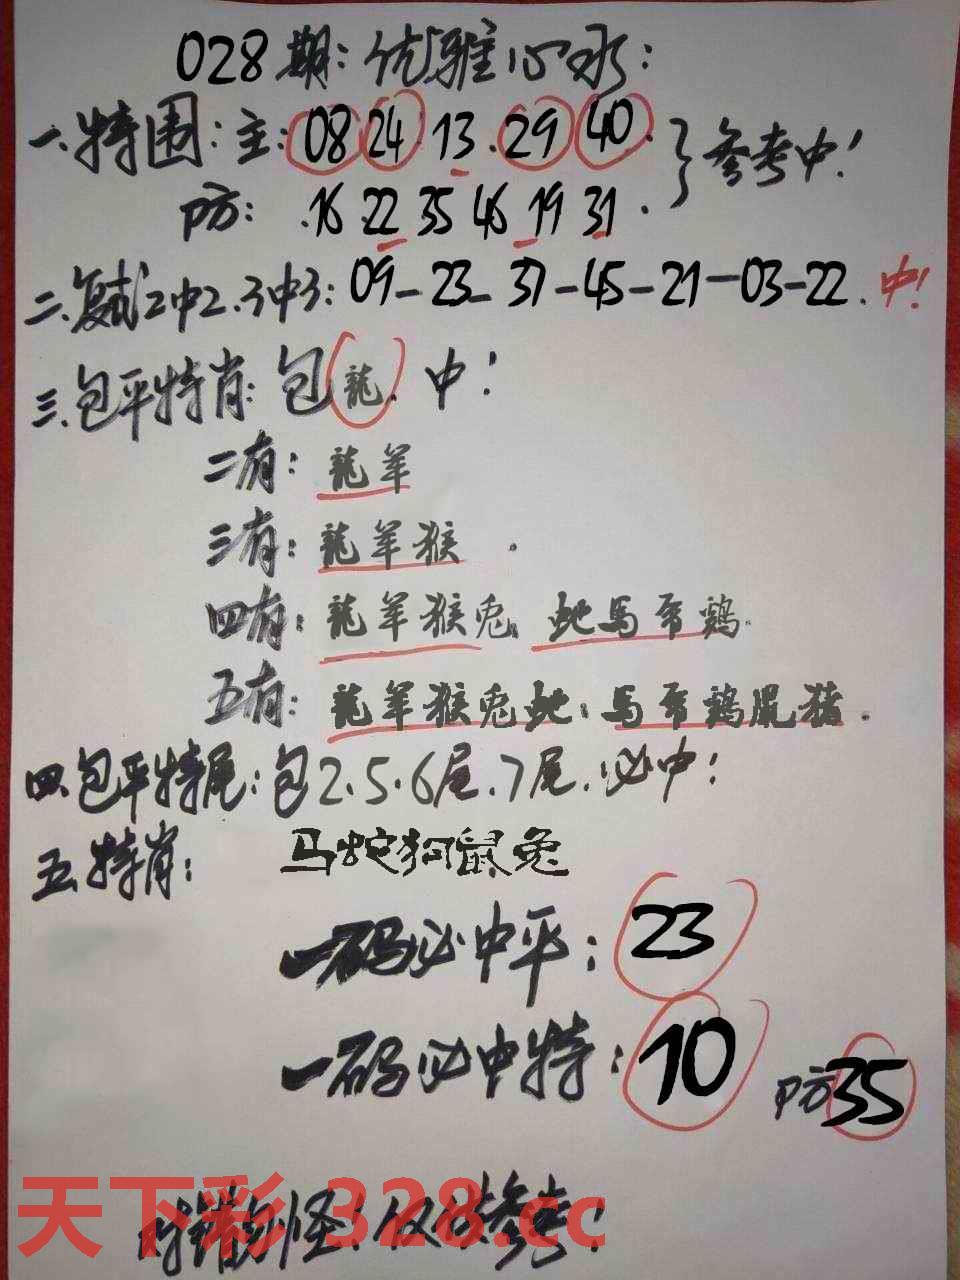 028期:优雅心水:
一.特围:主:08 24 13.29 40.}参考中!
防: .16 22 35 46 19 31.
二.复式2中2.3中3:09-23-37-45-21-03-22.中!
三.包平特肖:包龍.中!
二有:龍羊
三有:龍羊猴.
四有:龍羊猴兎.蛇馬帝鶏.
五有:龍羊猴兎蛇:馬帝鶏鼠猪.
四.包平特尾:包2.5.6尾.7尾.必中!
五.特肖:马蛇狗鼠兔
一码必中平:23
一码必中特:10 防35
对错勿怪!仅供参考!
天下彩 328.cc